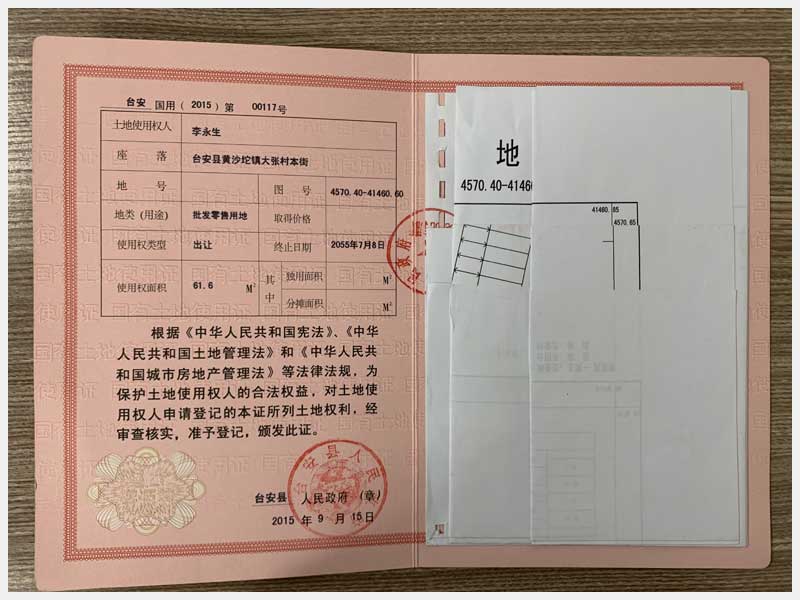 台安 国用（2015）第 00117号
土地使用权人 李永生
座 落 台安县黄沙坨镇大张村本街
地 号 图 号 4570.40-41460.60
地类（用途） 批发零售用地 取得价格
使用权类型 出让 终止日期 2055年7月8日
使用权面积 61.6 M² 其中 独用面积 M²
分摊面积 M²
根据《中华人民共和国宪法》、《中华
人民共和国土地管理法》和《中华人民共
和国城市房地产管理法》等法律法规，为
保护土地使用权人的合法权益，对土地使
用权人申请登记的本证所列土地权利，经
审查核实，准予登记，颁发此证。
台安县 人民政府（章）
2015 年 9 月 15日
台安县人民
地
4570.40-41460
41460.85
4570.65